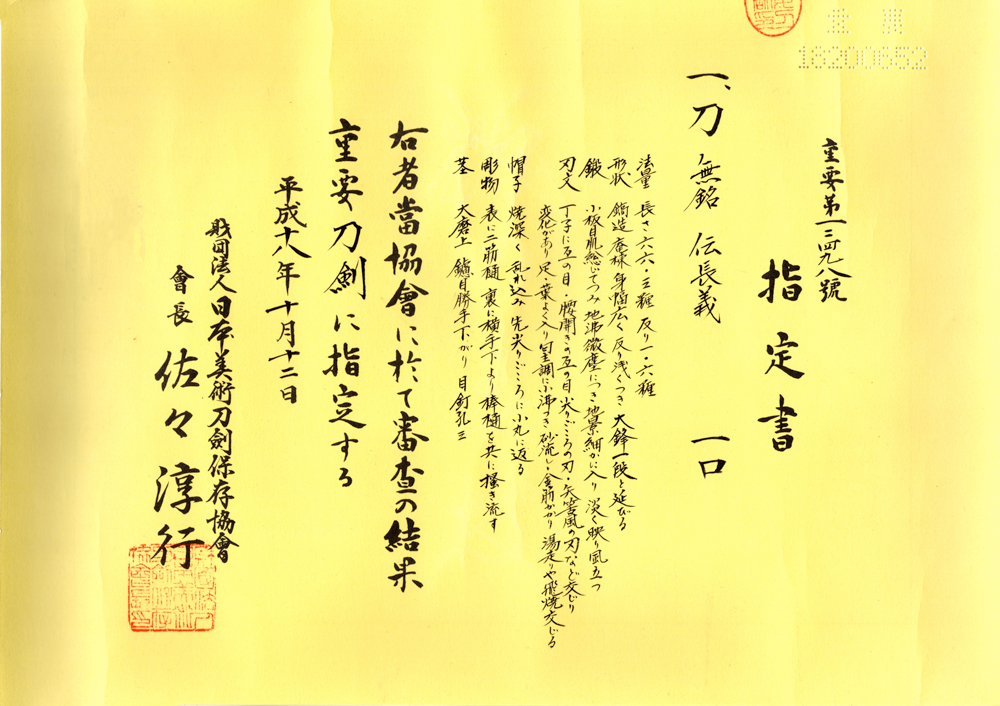 重要第一三四九八號
指定書
一、刀 無銘 伝長義 一口
法量 長さ六六・三糎 反り一・六糎
形状 鎬造 庵棟 身幅広く 反り浅くつき 大鋒一段と延びる
鍛 小板目肌総じてつみ 地沸微塵につき 地景細かに入り 淡く映り風立つ
刃文 丁子に互の目・腰開きの互の目・尖りごころの刃・矢筈風の刃など交じり
変化があり 足・葉よく入り 匂調に小沸つき 砂流し・金筋かかり 湯走りや飛焼交じる
帽子 焼深く 乱れ込み 先尖りごころに小丸に返る
彫物 表に二筋樋 裏に横手下より棒樋を共に掻き流す
茎 大磨上 鑢目勝手下がり 目釘孔三
右者當協會に於て審査の結果
重要刀剣に指定する
平成十八年十月十二日
財団法人日本美術刀劍保存協會
會長 佐々淳行
18200652